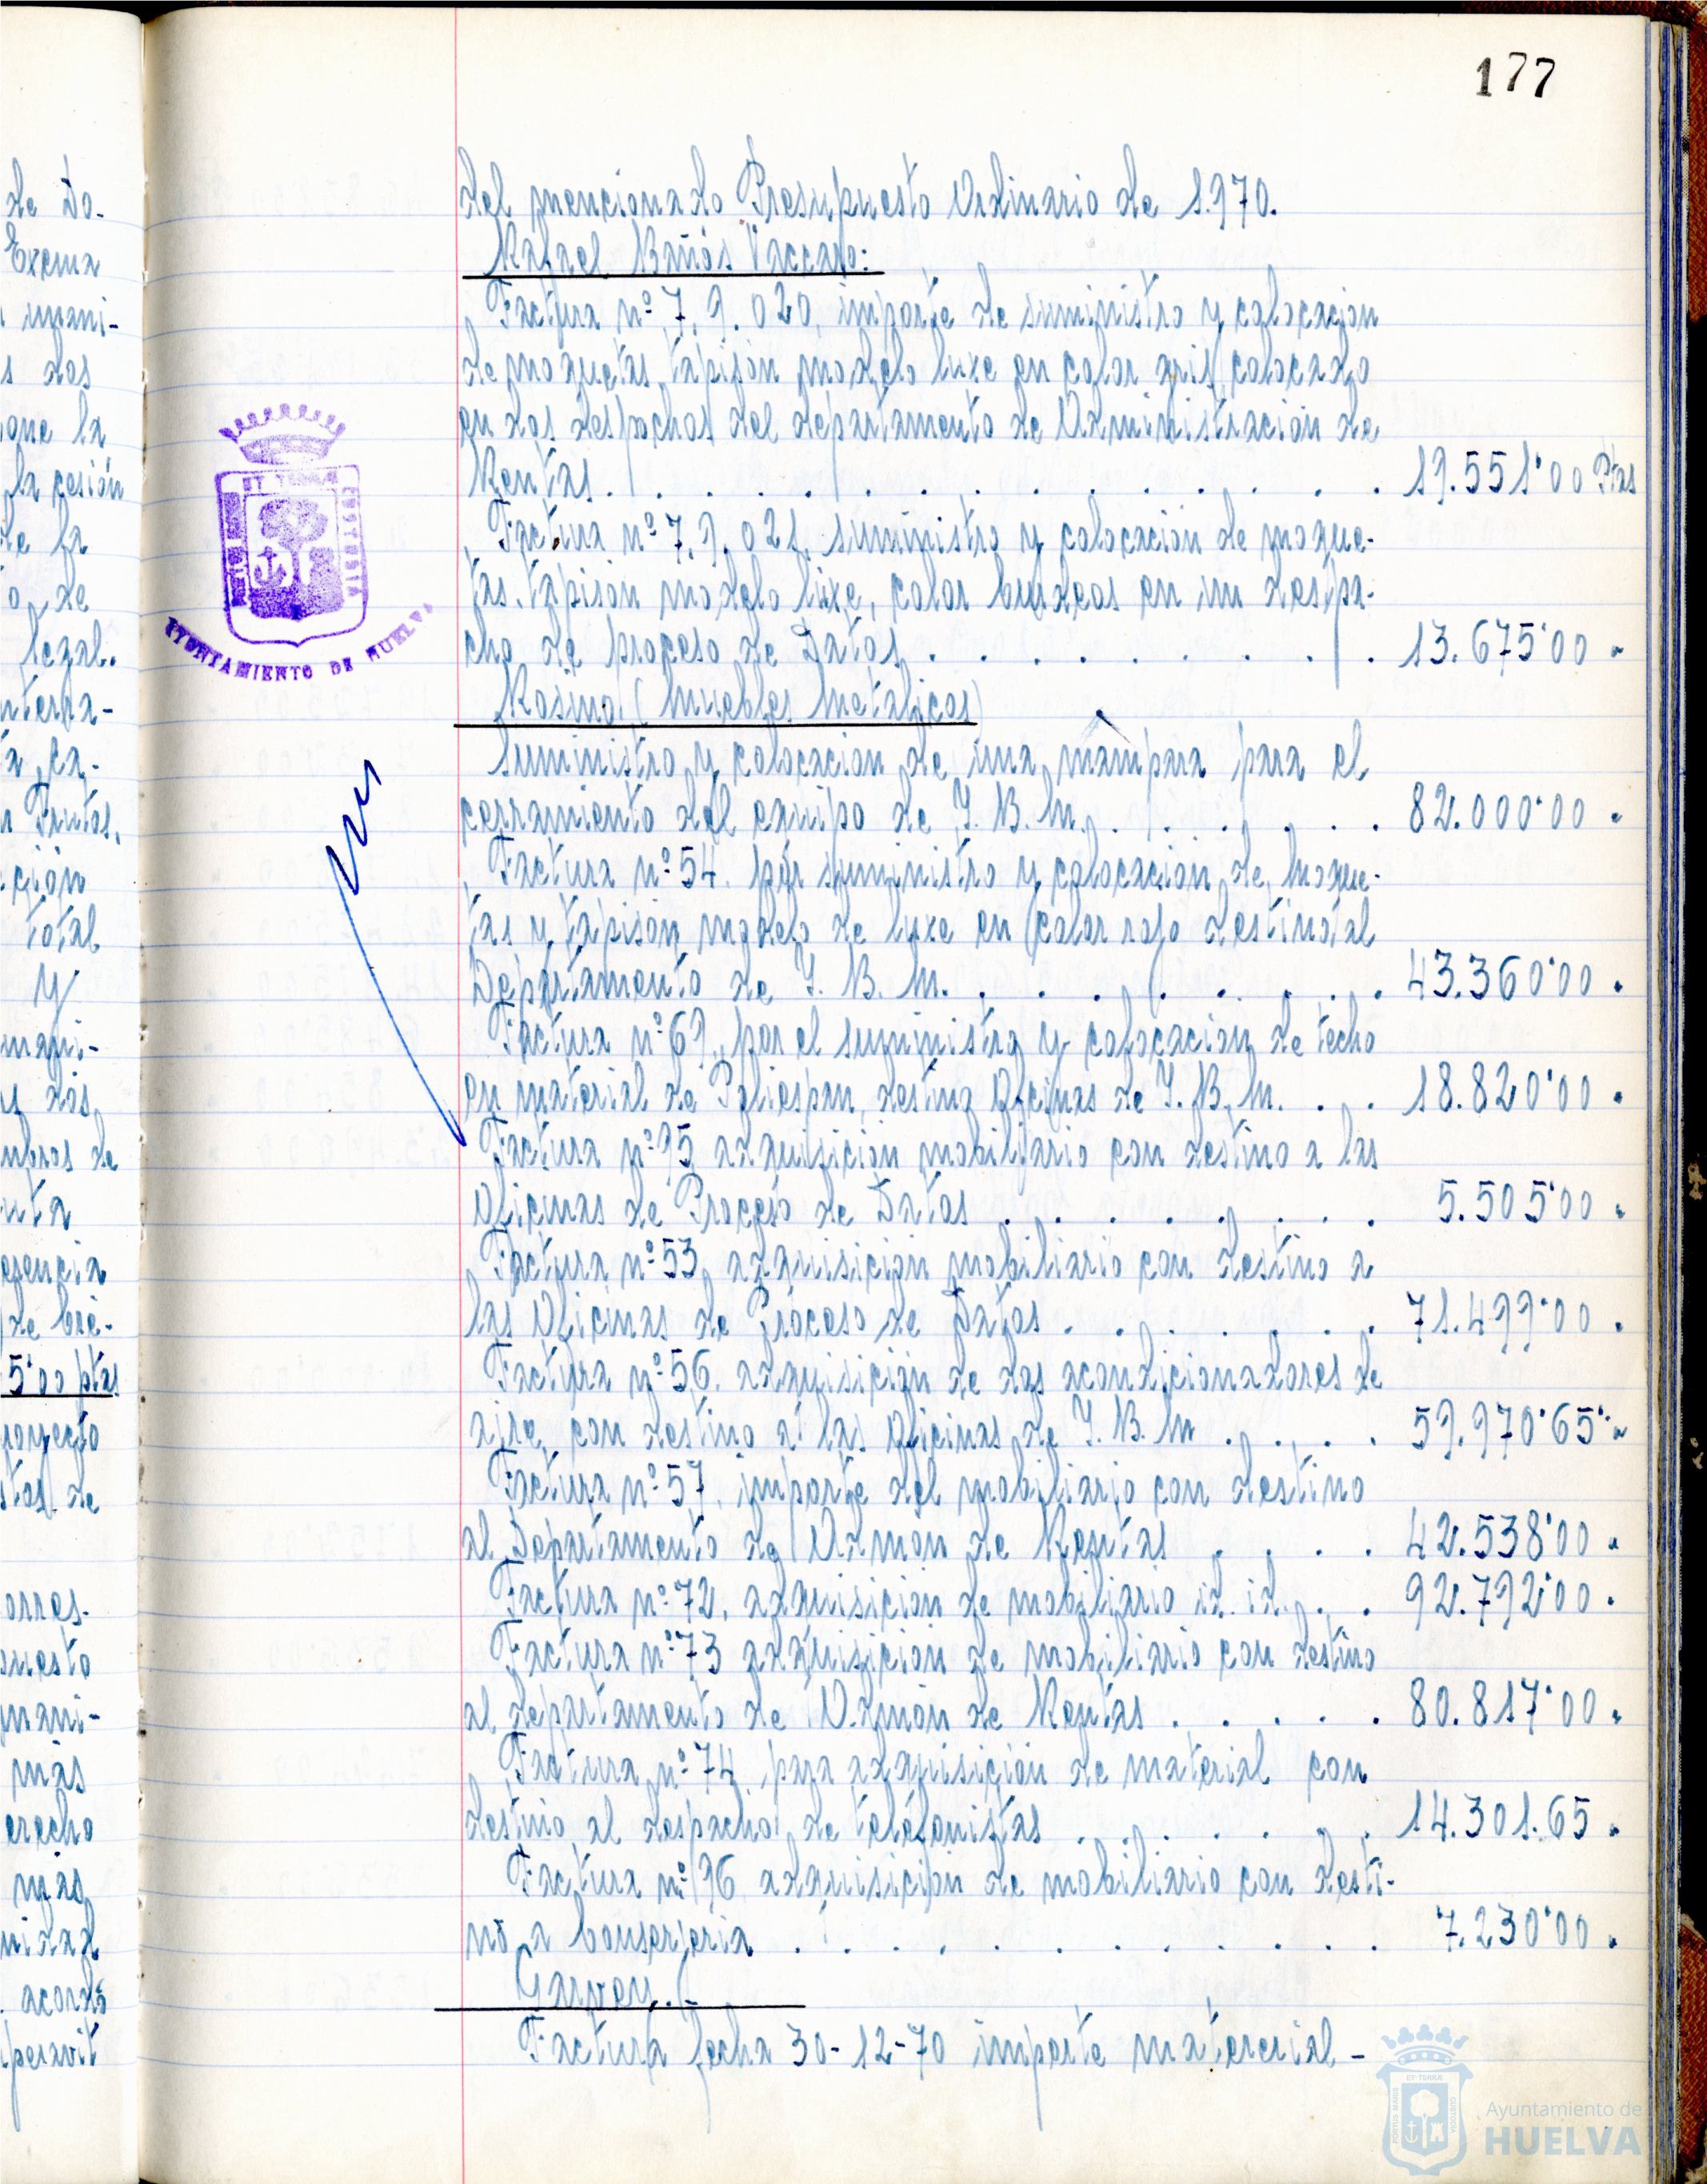 177
del mencionado Presupuesto Ordinario de 1.970.
Rafael Baños Vaccaro:
Factura nº 7.9.020, importe de suministro y colocacion
de moquetas tapisón modelo luxe en color gris colocado
en dos despachos del departamento de Administracion de
Rentas. . . . . . . . . . . . . . 19.551'00 Ptas
Factura nº 7.9.021, suministro y colocación de moque-
tas tapisón modelo luxe, color burdeos en un despa-
cho de proceso de Datos . . . . . . . . 13.675'00 "
Rosino (Muebles Metalicos)
Suministro y colocacion de una mampara para el
cerramiento del equipo de I.B.M. . . . . . . 82.000'00 "
Factura nº 54. por suministro y colocación de Moque-
tas y tapisón modelo de luxe en color rojo destino al
Departamento de I.B.M. . . . . . . . . 43.360'00 "
Factura nº 69, por el suministro y colocacion de techo
en material de Poliespan, destino Oficinas de I.B.M. . . 18.820'00 "
Factura nº 95 adquisición mobiliario con destino a las
Oficinas de Proceso de Datos . . . . . . . . 5.505'00 "
Factura nº 53, adquisición mobiliario con destino a
las Oficinas de Proceso de Datos . . . . . . 71.499'00 "
Factura nº 56. adquisición de dos acondicionadores de
aire, con destino a las Oficinas de I.B.M . . . . 59.970'65 "
Factura nº 57. importe del mobiliario con destino
al Departamento de Admon de Rentas . . . . 42.538'00 "
Factura nº 72, adquisición de mobiliario id. id. . . 92.792'00 "
Factura nº 73 adquisición de mobiliario con destino
al departamento de Admón de Rentas . . . . . 80.817'00 "
Factura nº 74 para adquisición de material con
destino al despacho de telefonistas . . . . . . 14.301.65 "
Factura nº 96 adquisición de mobiliario con desti-
no a Conserjeria . . . . . . . . . . . 7.230'00 "
Garvey.
Factura fecha 30-12-70 importe matererial -
AYUNTAMIENTO DE HUELVA
de Do-
Excma
unani-
s dos
que la
la cesión
de la
o, de
legal.
nterra-
a, ca-
n Frutos,
ción
total
y
mani-
y dos,
mbros de
nta
esencia
de bre-
5'00 ptas
royecto
stos de
orres-
uesto
mani-
más
erecho
más
nidad
. acordó
Ayuntamiento de
HUELVA